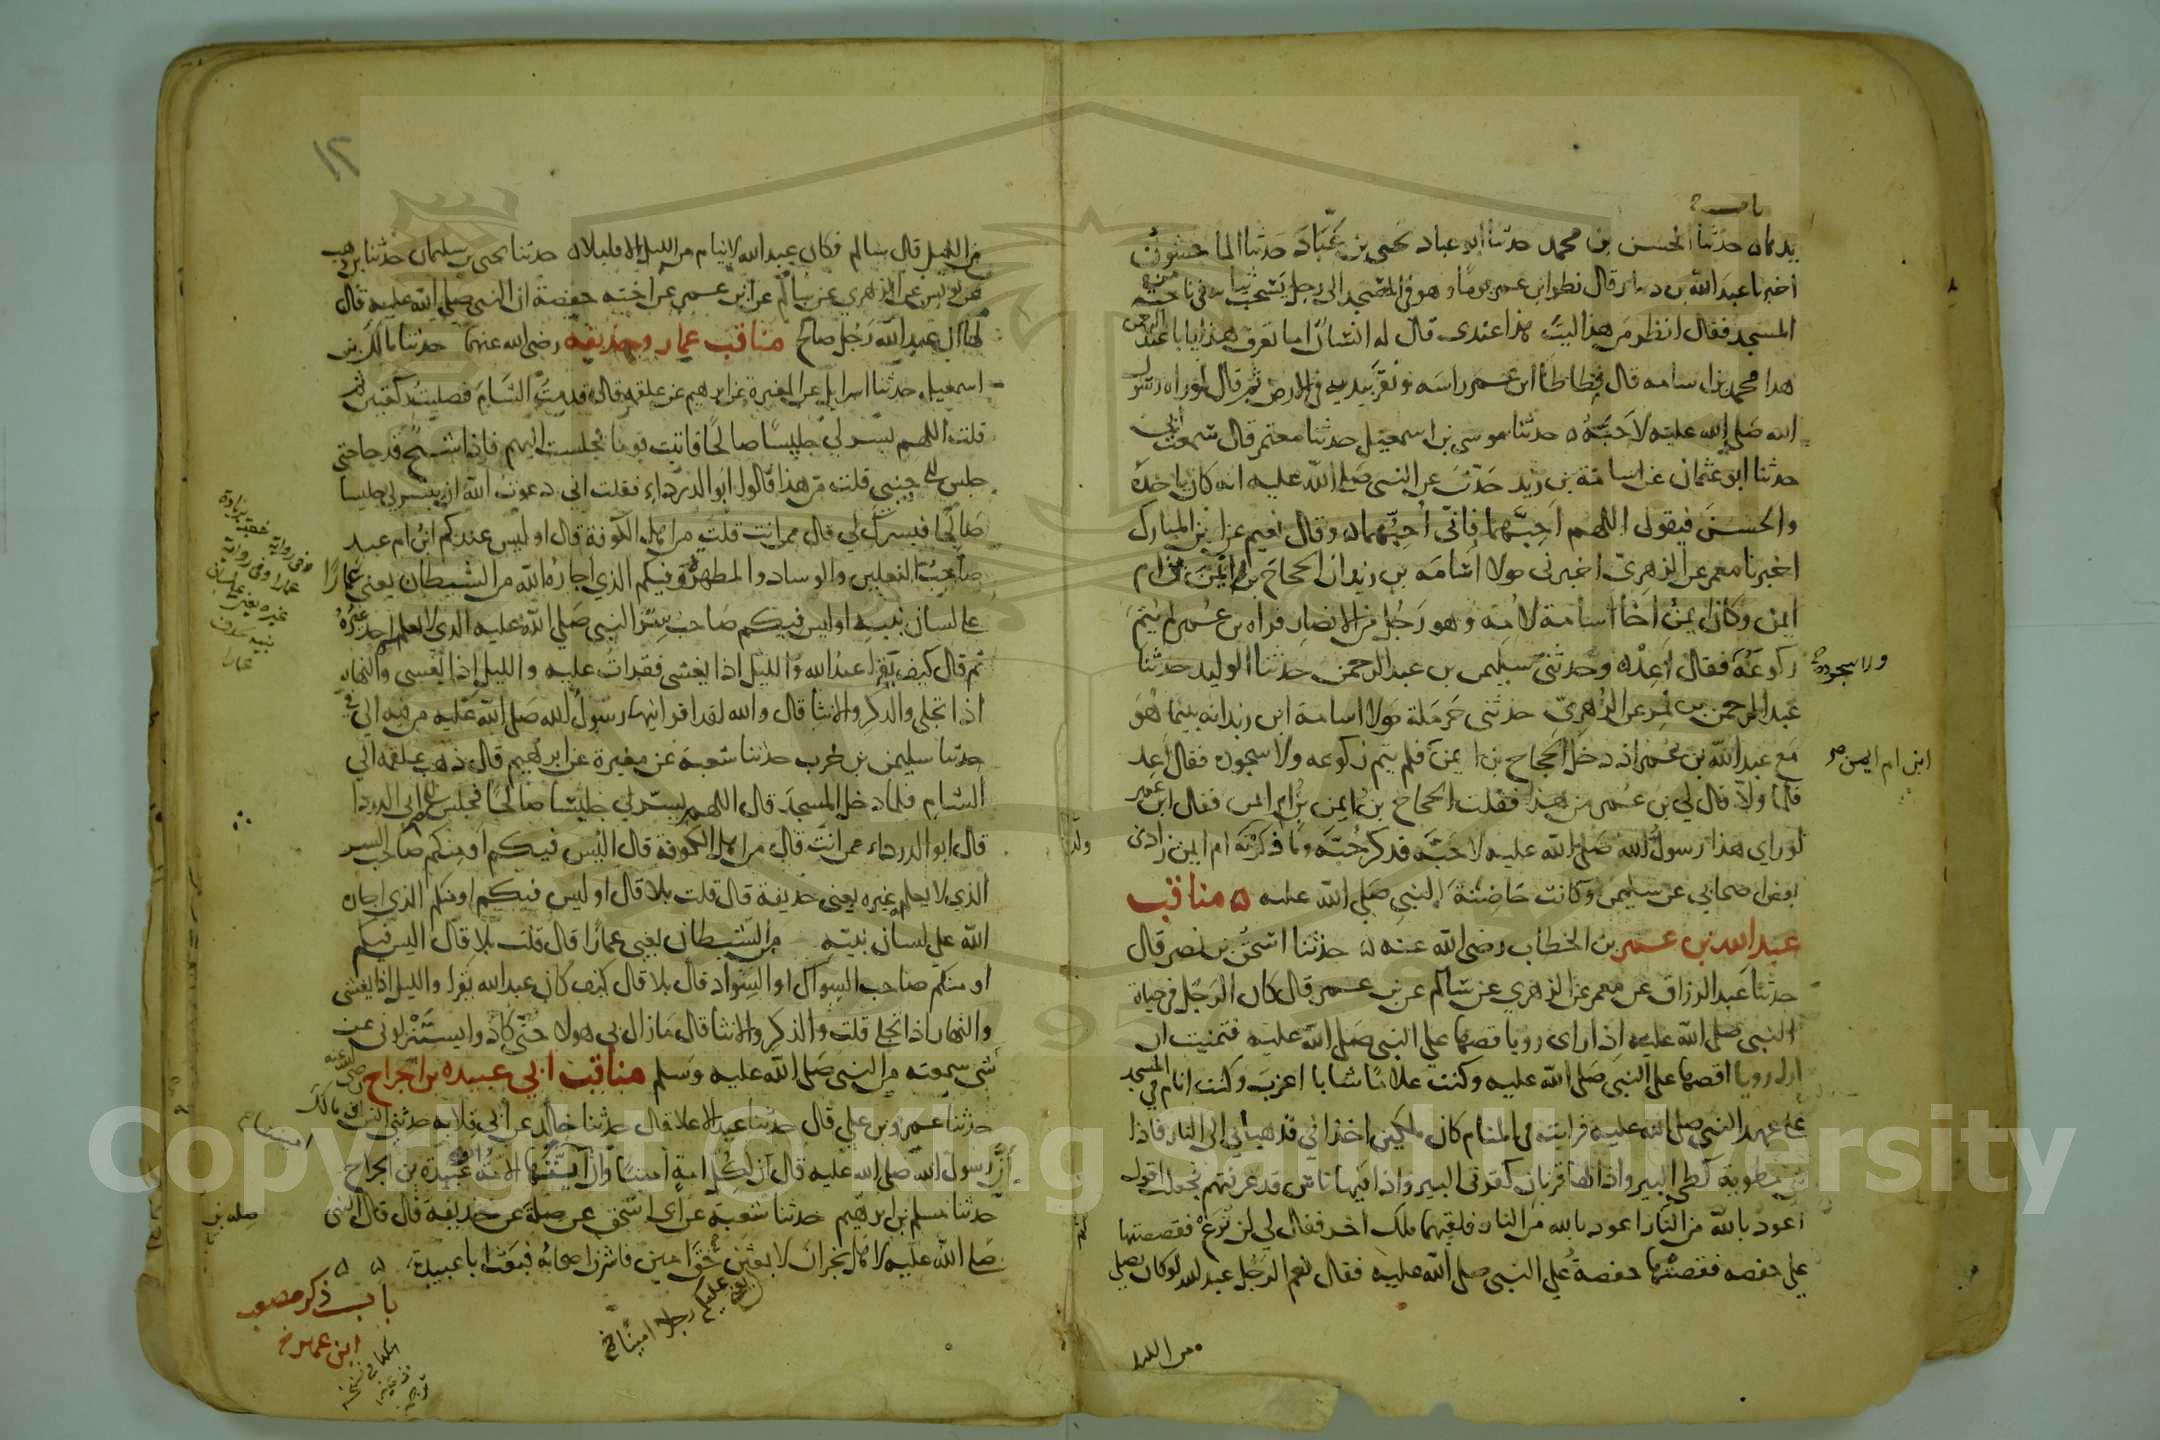 باب
حدثنا الحسن بن محمد حدثنا ابو عباد يحيى بن عباد حدثنا الماجشون
اخبرنا عبد الله بن دينار قال نظر ابن عمر يوما وهو في المسجد الى رجل يسحب ثيابه في ناحية من
المسجد فقال انظر من هذا ليت هذا عندي قال له انسان اما تعرف هذا يابا عبد الرحمن
هذا محمد بن اسامه قال فطاطا ابن عمر راسه ونقر بيديه في الارض ثم قال لو راه رسول
الله صلى الله عليه لاحبه ه حدثنا موسى بن اسمعيل حدثنا معتمر قال سمعت ابي
حدثنا ابو عثمان عن اسامة بن زيد حدث عن النبي صلى الله عليه انه كان ياخذه
والحسن فيقول اللهم احبهما فاني احبهما ه وقال نعيم عن ابن المبارك
اخبرنا معمر عن الزهري اخبرني مولا اسامه بن زيد ان الحجاج بن ايمن بن ام
ايمن وكان ايمن اخا اسامة لامه وهو رجل من الانصار فراه بن عمر لم يتم
ركوعه فقال اعد ه وحدثني سليمن بن عبد الرحمن حدثنا الوليد حدثنا
ولا سجوده
عبد الرحمن بن نمر عن الزهري حدثني حرملة مولا اسامة ابن زيد انه بينما هو
مع عبد الله بن عمر اذ دخل الحجاج بن ايمن فلم يتم ركوعه ولا سجوده فقال اعد
ابن ام ايمن
فلما ولا قال لي بن عمر من هذا فقلت الحجاج بن ايمن بن ام ايمن فقال ابن عمر
لو راى هذا رسول الله صلى الله عليه لاحبه فذكر حبه وما ولدته ام ايمن زادني
بعض اصحابي عن سليمن وكانت حاضنة النبي صلى الله عليه ه مناقب
عبد الله بن عمر بن الخطاب رضي الله عنه ه حدثنا اسحق بن نصر قال
حدثنا عبد الرزاق عن معمر عن الزهري عن سالم عن بن عمر قال كان الرجل في حياة
النبي صلى الله عليه اذا راى رويا قصها على النبي صلى الله عليه فتمنيت ان
ارى رويا اقصها على النبي صلى الله عليه وكنت غلاما شابا اعزب وكنت انام في المسجد
على عهد النبي صلى الله عليه فرايت في المنام كان ملكين اخذاني فذهبا بي الى النار فاذا
هي مطوية كطي البير واذا لها قرنان كقرني البير واذا فيها ناس قد عرفتهم فجعلت اقول
اعوذ بالله من النار اعوذ بالله من النار فلقيهما ملك اخر فقال لي لن ترع فقصصتها
على حفصه فقصتها حفصة على النبي صلى الله عليه فقال نعم الرجل عبد الله لو كان يصلي
من الليل
١٢
من الليل قال سالم فكان عبد الله لا ينام من الليل الا قليلا ه حدثنا يحيى بن سليمان حدثنا بن وهب
عن يونس عن الزهري عن سالم عن ابن عمر عن اخته حفصة ان النبي صلى الله عليه قال
لها ان عبد الله رجل صالح مناقب عمار وحذيفه رضي الله عنهما حدثنا مالك بن
اسمعيل حدثنا اسرايل عن المغيرة عن ابرهيم عن علقمه قال قدمت الشام فصليت ركعتين ثم
قلت اللهم يسر لي جليسا صالحا فاتيت قوما فجلست اليهم فاذا شيخ قد جا حتى
جلس الى جنبي قلت من هذا قالوا ابو الدرداء فقلت اني دعوت الله ان ييسر لي جليسا
صالحا فيسرك لي قال ممن انت قلت من اهل الكوفة قال اوليس عندكم ابن ام عبد
صاحب النعلين والوساد والمطهرة وفيكم الذي اجاره الله من الشيطان يعني عمارا
على لسان نبيه اوليس فيكم صاحب سر النبي صلى الله عليه الذي لا يعلم احد غيره
ثم قال كيف يقرا عبد الله والليل اذا يغشى فقرات عليه والليل اذا يغشى والنهار
اذا تجلى والذكر والانثا قال والله لقد اقرانيها رسول الله صلى الله عليه من فيه الى في
حدثنا سليمن بن حرب حدثنا شعبة عن مغيرة عن ابرهيم قال ذهب علقمه الى
الشام فلما دخل المسجد قال اللهم يسر لي جليسا صالحا فجلس الى ابي الدردا
قال ابو الدرداء ممن انت قال من اهل الكوفة قال اليس فيكم او منكم صاحب السر
الذي لا يعلم غيره يعني حذيفة قال قلت بلا قال اوليس فيكم او منكم الذي اجاره
الله على لسان نبيه من الشيطان يعني عمارا قال قلت بلا قال اليس فيكم
او منكم صاحب السواك او السواد قال بلا قال كيف كان عبد الله يقرا والليل اذا يغشى
والنهار اذا تجلى قلت والذكر والانثا قال ما زال بي هولا حتى كادوا يستنزلوني عن
شي سمعته من النبي صلى الله عليه وسلم مناقب ابي عبيده بن الجراح رضي الله عنه
حدثنا عمرو بن علي قال حدثنا عبد الاعلا قال حدثنا خالد عن ابي قلابه حدثني انس بن مالك
ان رسول الله صلى الله عليه قال ان لكل امة امينا وان اميننا ايتها الامة ابو عبيدة بن الجراح
حدثنا مسلم بن ابرهيم حدثنا شعبة عن ابي اسحق عن صلة عن حذيفة قال قال النبي
صلى الله عليه لاهل نجران لابعثن حق امين فاشرف اصحابه فبعث ابا عبيدة ه ه
عليكم رجلا امينا
باب ذكر مصعب
ابن عمير
Copyright © King Saud University